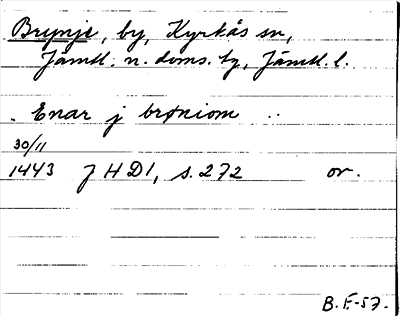 Brynje, by, Kyrkås sn,
Jämtl. n. doms. tg, Jämtl. l.
. Enar j brøniom ..
30/11
1443 JHD1, s. 272 or.
B.E.-57.